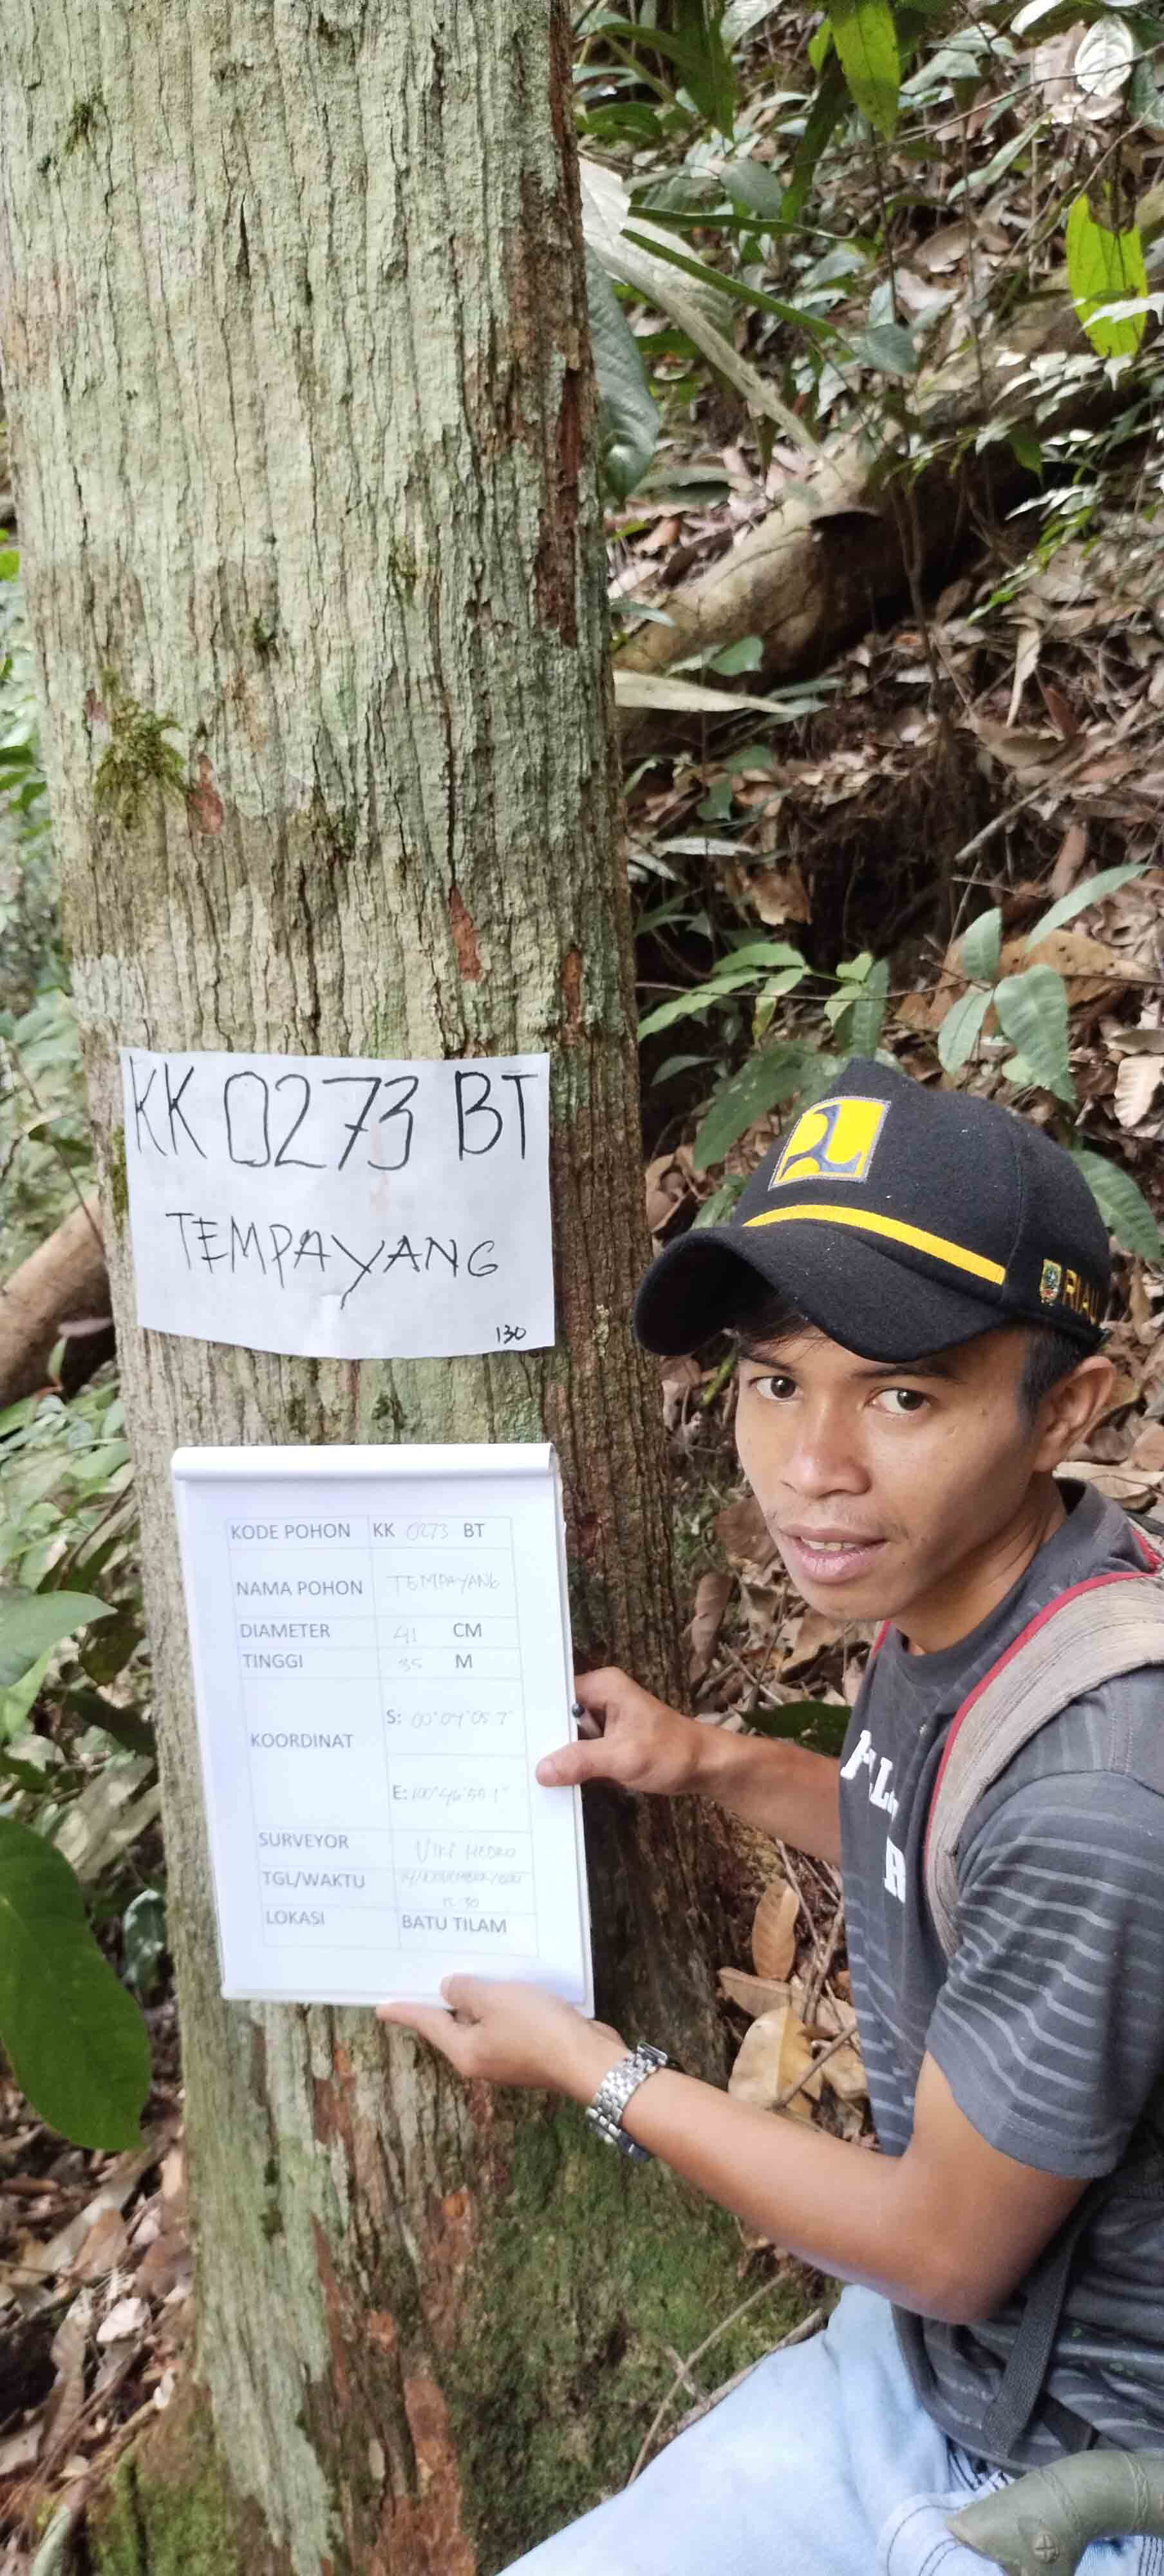 KK 0273 BT
TEMPAYANG
130
RIAU
KODE POHON KK 0273 BT
NAMA POHON TEMPAYANG
DIAMETER 41 CM
TINGGI 35 M
KOORDINAT
S: 00°04'05.7"
E: 100°46'55.1"
SURVEYOR
TGL/WAKTU
15:30
LOKASI BATU TILAM